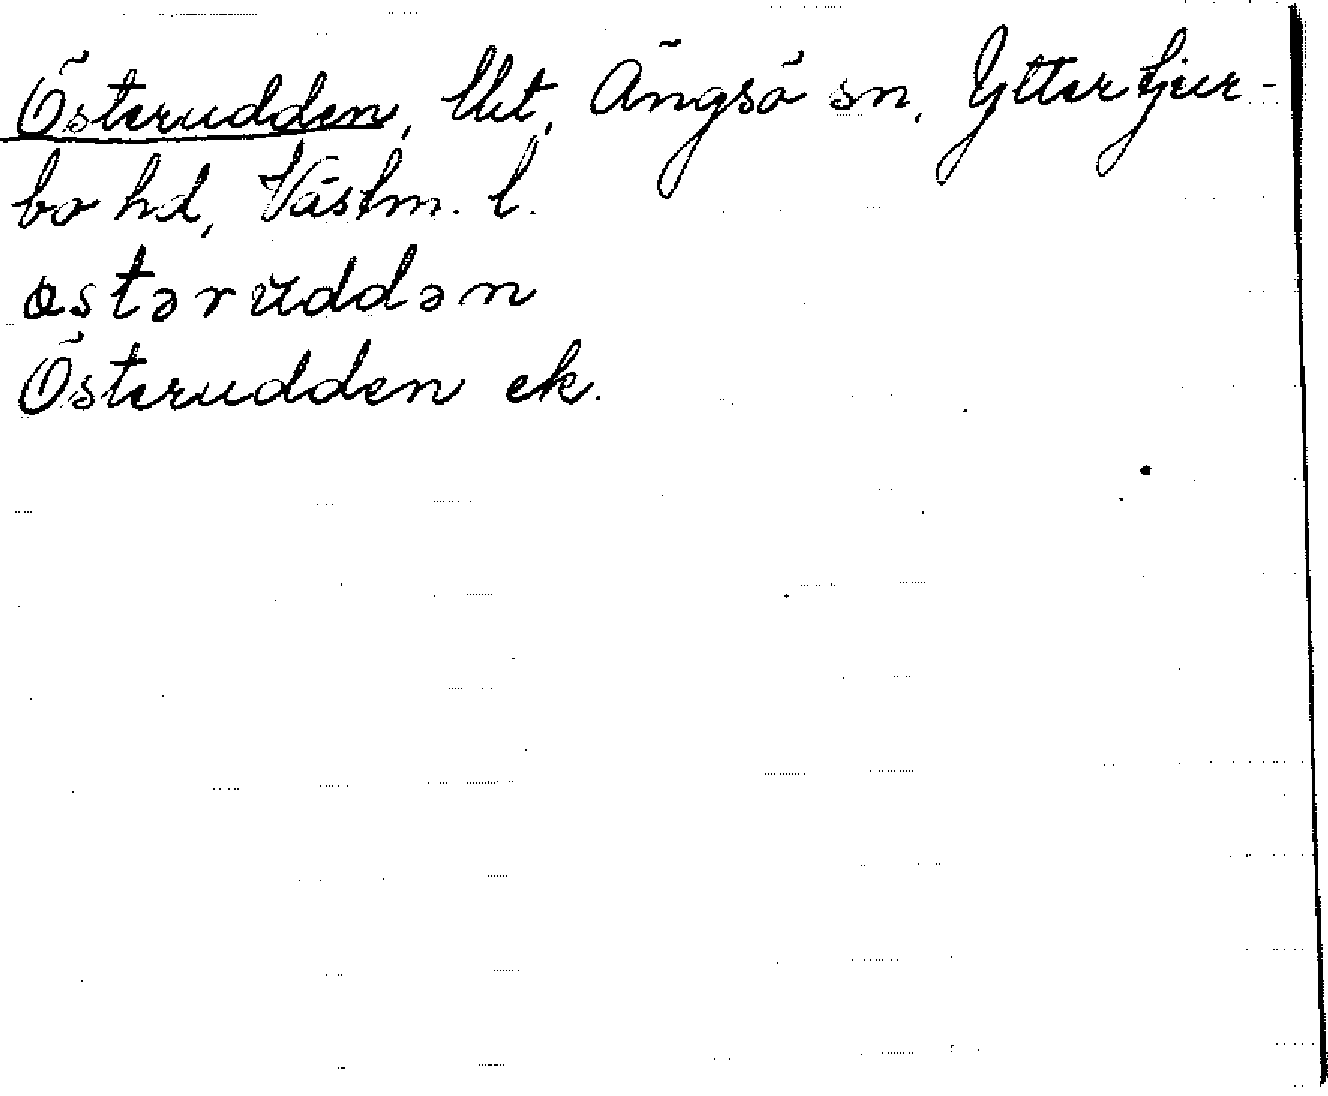 Österudden, lht, Ängsö sn, Yttertjur-
bo hd, Västm. l.
østərŭddən
Österudden ek.